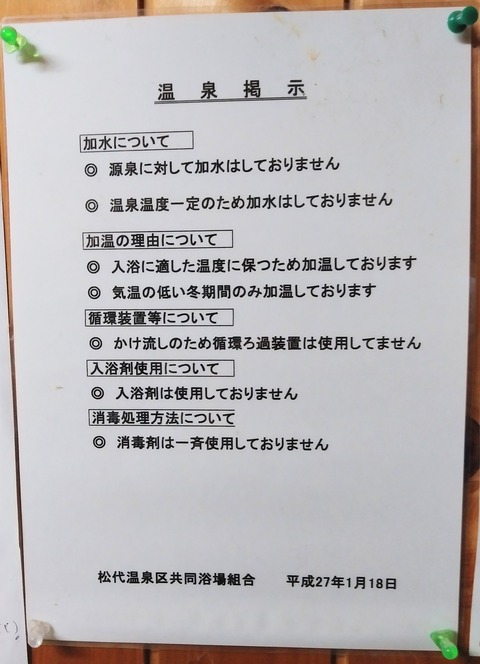 温泉掲示
加水について
◎ 源泉に対して加水はしておりません
◎ 温泉温度一定のため加水はしておりません
加温の理由について
◎ 入浴に適した温度に保つため加温しております
◎ 気温の低い冬期間のみ加温しております
循環装置等について
◎ かけ流しのため循環ろ過装置は使用してません
入浴剤使用について
◎ 入浴剤は使用しておりません
消毒処理方法について
◎ 消毒剤は一斉使用しておりません
松代温泉区共同浴場組合 平成27年1月18日